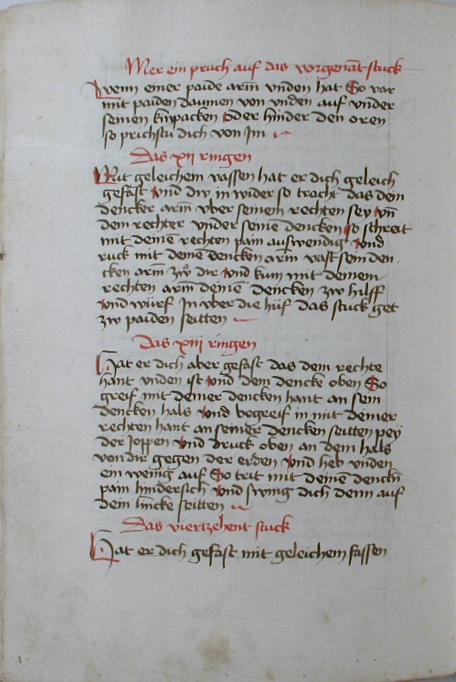 Mer ein pruch auf das vorgenāt stuck
Wenn einer paide arm vnden hat So var
mit paiden daumen von vnden auf vnder
seinen knpacken Oder hinder den oren
so prichstu dich von Im
Das xii ringen
Mit geleichem vassen hat er dich geleich
gefast Vnd dw in wider so tracht das dein
dencker arm vber seinem rechten sey Vn̄
dem rechter vnder seine dencken So schreit
mit deinē rechten pain auswendig Vnd
ruck mit deinē dencken arm vast sein den
cken arm zw dir Vnd kum mit deinem
rechten arm deinē dencken zw hilff
Vnd würf In vber die hüf das stuck get
zw paiden seitten
Das xiii ringen
Hat er dich aber gefast das dein rechte
hant vnden ist Vnd dein dencke oben So
greif mit deiner dencken hant an sein
dencken hals Vnd begreif in mit deiner
rechten hant an seiner dencken seitten pey
der Joppen Vnd druck oben an dem hals
von dir gegen der erden Vnd heb vnden
ein wenig auf So trit mit deinē denckn̄
pain hindersich Vnd swing dich denn auf
dein lincke seitten
Das viertzehent stuck
Hat er dich gefast mit geleichem fassen